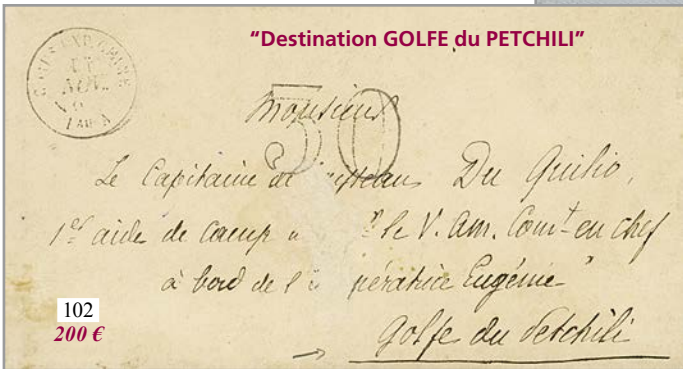 "Destination GOLFE du PETCHILI"
NOV.
30
Monsieur
Le Capitaine de Du Quilio,
1er aide de camp le V. Am. Comt en chef
à bord de l' pératrice Eugénie"
Golfe du Petchili
102
200 €